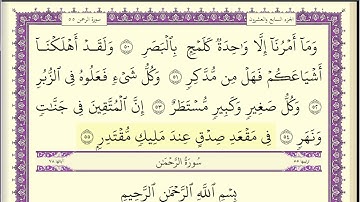 الجزء السابع والعشرون سورة الرحمن ٥٥
وَمَآ أَمْرُنَآ إِلَّا وَٰحِدَةٌ كَلَمْحٍۭ بِٱلْبَصَرِ ۝٥٠ وَلَقَدْ أَهْلَكْنَآ
أَشْيَاعَكُمْ فَهَلْ مِن مُّدَّكِرٍ ۝٥١ وَكُلُّ شَىْءٍ فَعَلُوهُ فِى ٱلزُّبُرِ
۝٥٢ وَكُلُّ صَغِيرٍ وَكَبِيرٍ مُّسْتَطَرٌ ۝٥٣ إِنَّ ٱلْمُتَّقِينَ فِى جَنَّٰتٍ
وَنَهَرٍ ۝٥٤ فِى مَقْعَدِ صِدْقٍ عِندَ مَلِيكٍ مُّقْتَدِرٍۭ ۝٥٥
سُورَةُ الرَّحْمَٰن
بِسْمِ ٱللَّهِ ٱلرَّحْمَٰنِ ٱلرَّحِيمِ